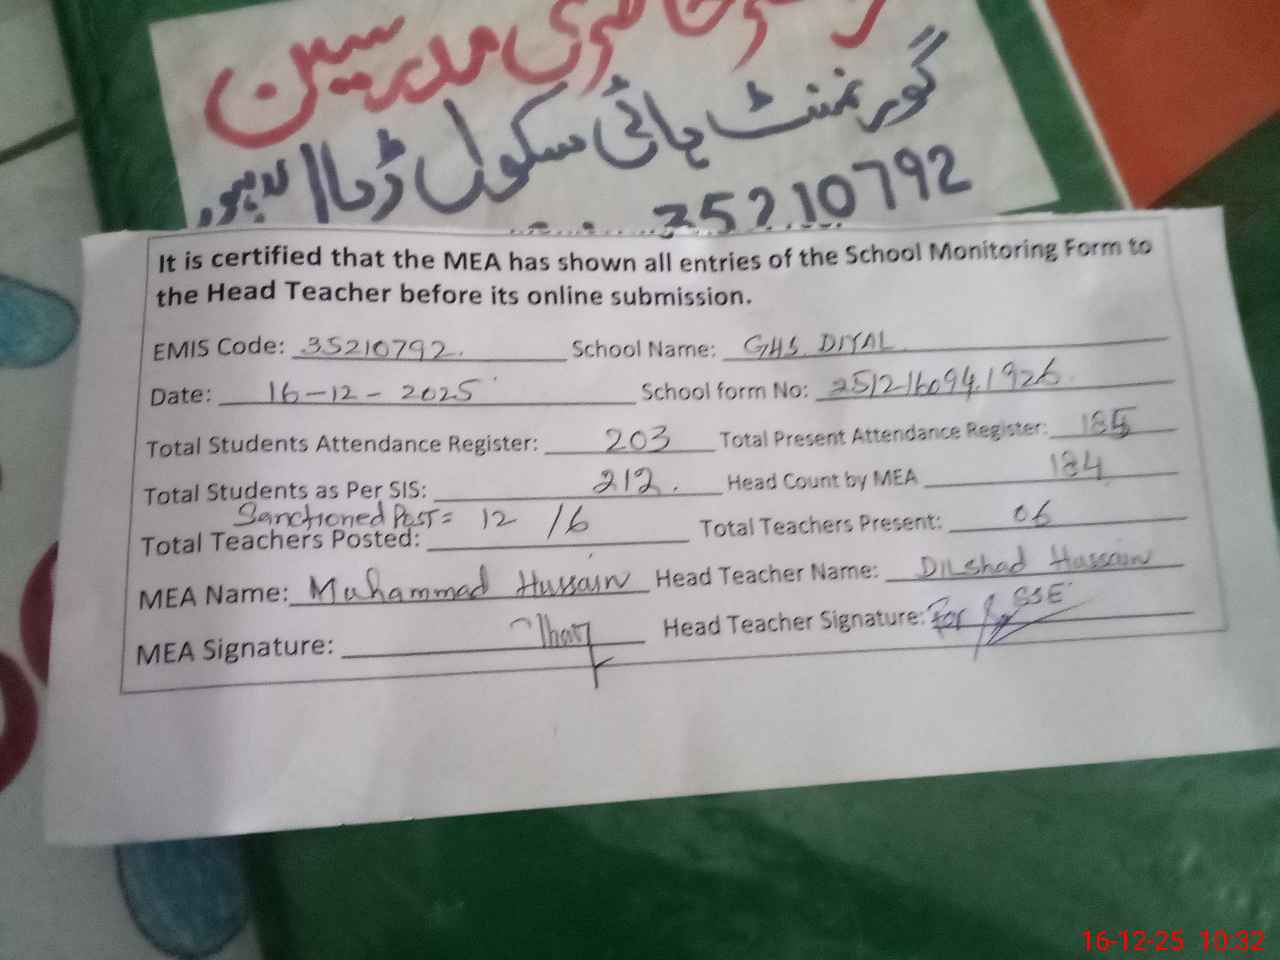 حاضری مدرسین
گورنمنٹ ہائی سکول ڈیال لاہور
35210792
It is certified that the MEA has shown all entries of the School Monitoring Form to
the Head Teacher before its online submission.
EMIS Code: 35210792. School Name: GHS DIYAL
Date: 16-12-2025 School form No: 251216094.1926
Total Students Attendance Register: 203 Total Present Attendance Register: 185
Total Students as Per SIS: 212. Head Count by MEA 184
Sanctioned Post = 12 /6
Total Teachers Posted: Total Teachers Present: 06
MEA Name: Muhammad Hussain Head Teacher Name: Dilshad Hussain
MEA Signature: Head Teacher Signature: For SSE
16-12-25 10:32